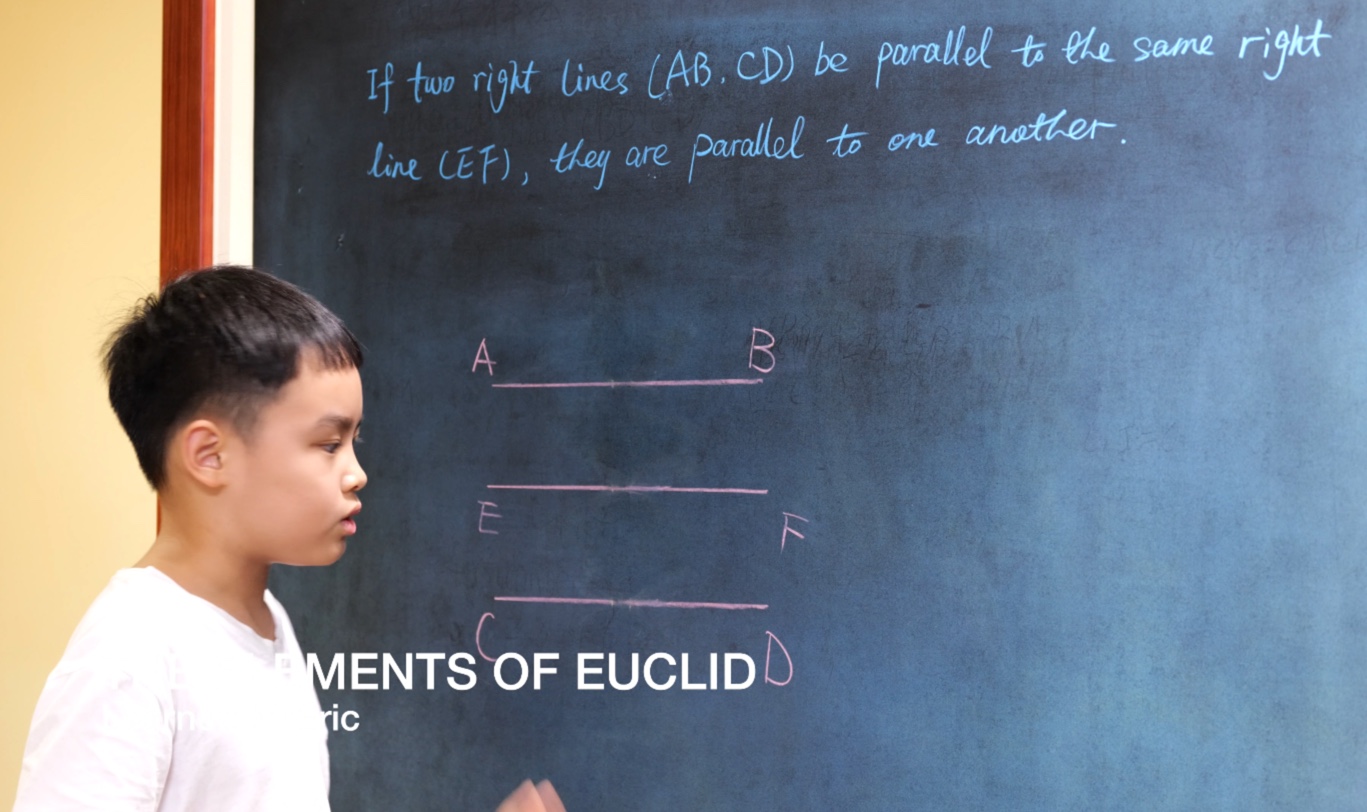 If two right lines (AB, CD) be parallel to the same right
line (EF), they are parallel to one another.
A B
E F
C D
OF EUCLID